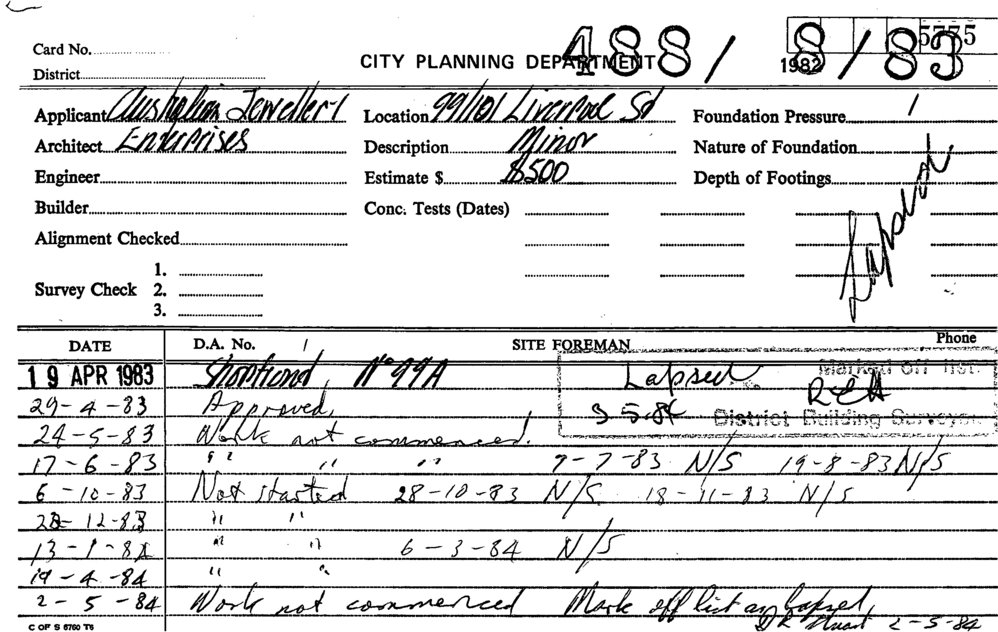 488/8/83
5775
1982
Card No.
CITY PLANNING DEPARTMENT
District
Applicant Australian Jewellery Location 99/101 Liverpool St Foundation Pressure
Architect Enterprises Description Minor Nature of Foundation
Engineer Estimate $ $500 Depth of Footings
Builder Conc. Tests (Dates)
Lapsed
Alignment Checked
1.
Survey Check 2.
3.
DATE D.A. No. SITE FOREMAN Phone
19 APR 1983 Shopfront, No 99A Lapsed Marked off list.
29-4-83 Approved, 3-5-84 District Building Surveyor
24-5-83 Work not commenced.
17-6-83 " " " 7-7-83 N/S 19-8-83 N/S
6-10-83 Not started 28-10-83 N/S 18-11-83 N/S
28-12-83 " "
13-1-84 " " 6-3-84 N/S
19-4-84 " "
2-5-84 Work not commenced Mark off list as lapsed,
2-5-84
C OF S 6760 T6